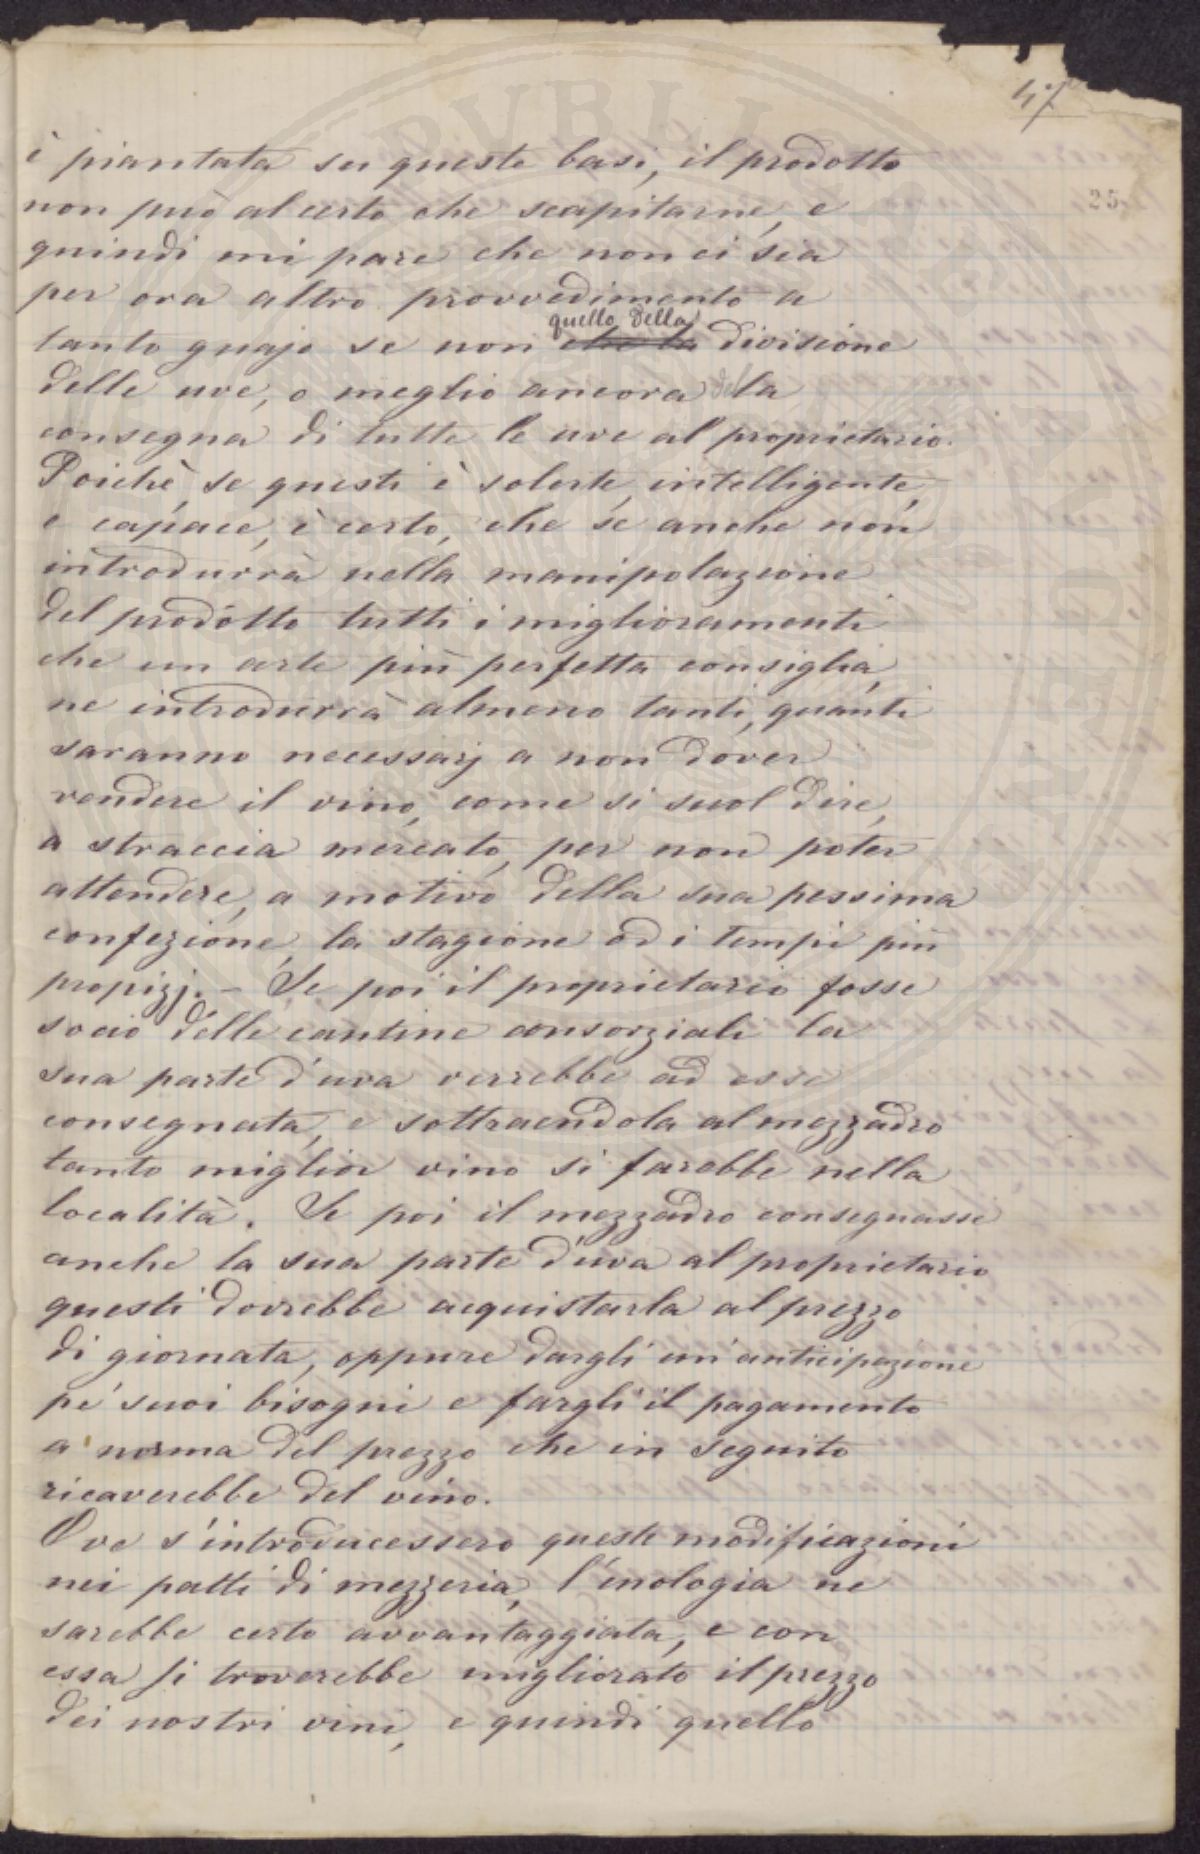 47
25
è piantata su queste basi, il prodotto
non può al certo che scapitarne, e
quindi mi pare che non ci sia
per ora altro provvedimento a
quello della
tanto guajo se non che la divisione
delle uve, o meglio ancora della
consegna di tutte le uve al proprietario.
Poichè, se questi è solerte, intelligente,
e capace, è certo, che se anche non
introdurrà nella manipolazione
del prodotto tutti i miglioramenti
che un arte più perfetta consiglia,
ne introdurrà almeno tanti, quanti
saranno necessarj a non dover
vendere il vino, come si suol dire,
a straccia mercato, per non poter
attendere, a motivo della sua pessima
confezione, la stagione od i tempi più
propizj. - Se poi il proprietario fosse
socio delle cantine consorziali la
sua parte d'uva verrebbe ad esse
consegnata, e sottraendola al mezzadro
tanto miglior vino si farebbe nella
località. Se poi il mezzadro consegnasse
anche la sua parte d'uva al proprietario
questi dovrebbe acquistarla al prezzo
di giornata, oppure dargli un'anticipazione
pe' suoi bisogni e fargli il pagamento
a norma del prezzo che in seguito
ricaverebbe del vino.
Ove s'introducessero queste modificazioni
nei patti di mezzeria, l'enologia ne
sarebbe certo avvantaggiata, e con
essa si troverebbe migliorato il prezzo
dei nostri vini, e quindi quello